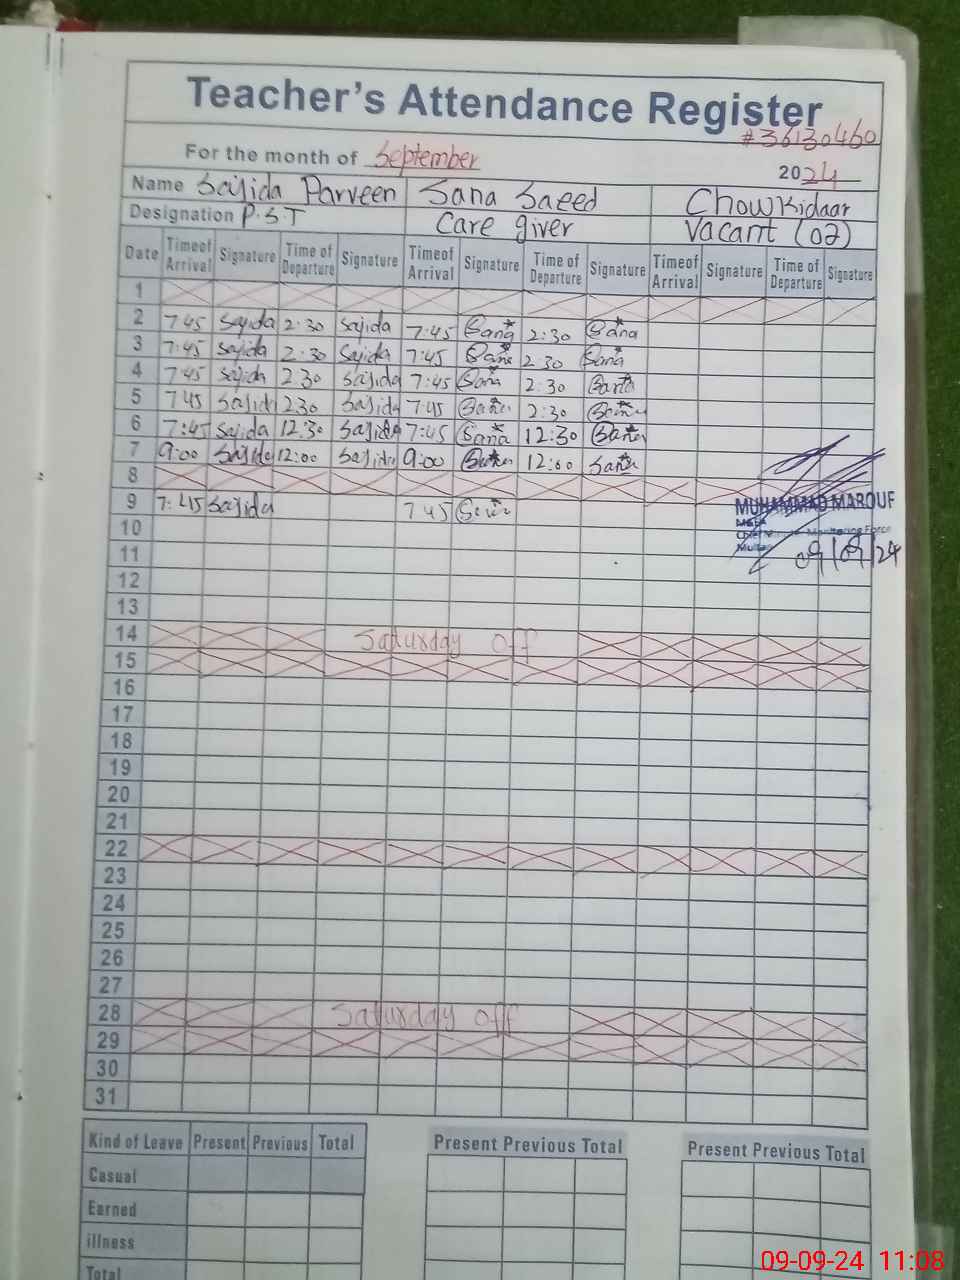 Teacher's Attendance Register
#36130460
For the month of September 2024
Name Sajida Parveen Sana Saeed Chowkidaar
Designation P.S.T Care giver Vacant (02)
Date Timeof Arrival Signature Time of Departure Signature Timeof Arrival Signature Time of Departure Signature Timeof Arrival Signature Time of Departure Signature
1
2 7 45 Sajida 2:30 Sajida 7:45 Sana 2:30 Sana
3 7:45 Sajida 2:30 Sajida 7:45 Sana 2 30 Sana
4 7 45 Sajida 2 30 Sajida 7:45 Sana 2:30 Sana
5 7 45 Sajida 2 30 Sajida 7 45 Sana 2:30 Sana
6 7:45 Sajida 12:30 Sajida 7:45 Sana 12:30 Sana
7 9:00 Sajida 12:00 Sajida 9:00 Sana 12:00 Sana
8
MUHAMMAD MAROUF
9 7:45 Sajida 7 45 Sana
Monitoring Force
10
09/09/24
11
12
13
14 Saturday off
15
16
17
18
19
20
21
22
23
24
25
26
27
28 Saturday off
29
30
31
Kind of Leave Present Previous Total Present Previous Total Present Previous Total
Casual
Earned
illness
Total
09-09-24 11:08